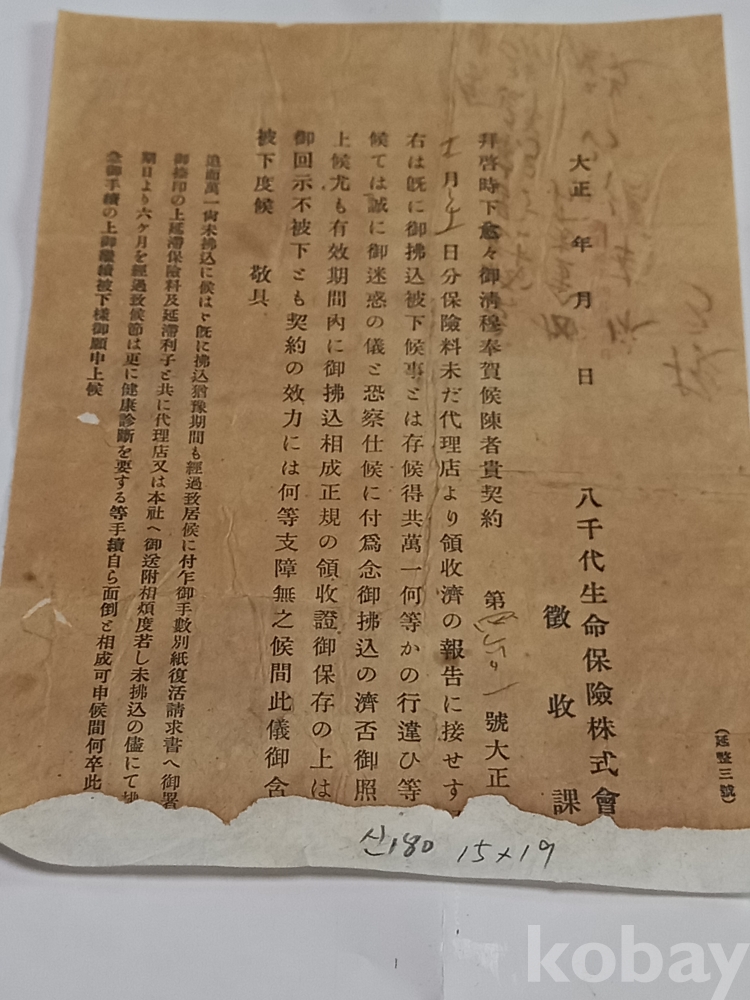 (延整三號)
八千代生命保險株式會
徵收課
大正 年 月 日
拜啓時下愈々御淸穆奉賀候陳者貴契約 第 號大正
月 日分保險料未だ代理店より領收濟の報告に接せす
右は旣に御拂込被下候事とは存候得共萬一何等かの行違ひ等
候ては誠に御迷惑の儀と恐察仕候に付爲念御拂込の濟否御照
上候尤も有效期間內に御拂込相成正規の領收證御保存の上は
御回示不被下とも契約の效力には何等支障無之候間此儀御含
被下度候 敬具
追而萬一尙未拂込に候はゞ旣に拂込猶豫期間も經過致居候に付乍御手數別紙復活請求書へ御署
御捺印の上延滯保險料及延滯利子と共に代理店又は本社へ御送附相煩度若し未拂込の儘にて
期日より六ヶ月を經過致候節は更に健康診斷を要する等手續自ら面倒と相成可申候間何卒此
急御手續の上御繼續被下樣御願申上候
신180 15×19
kobay